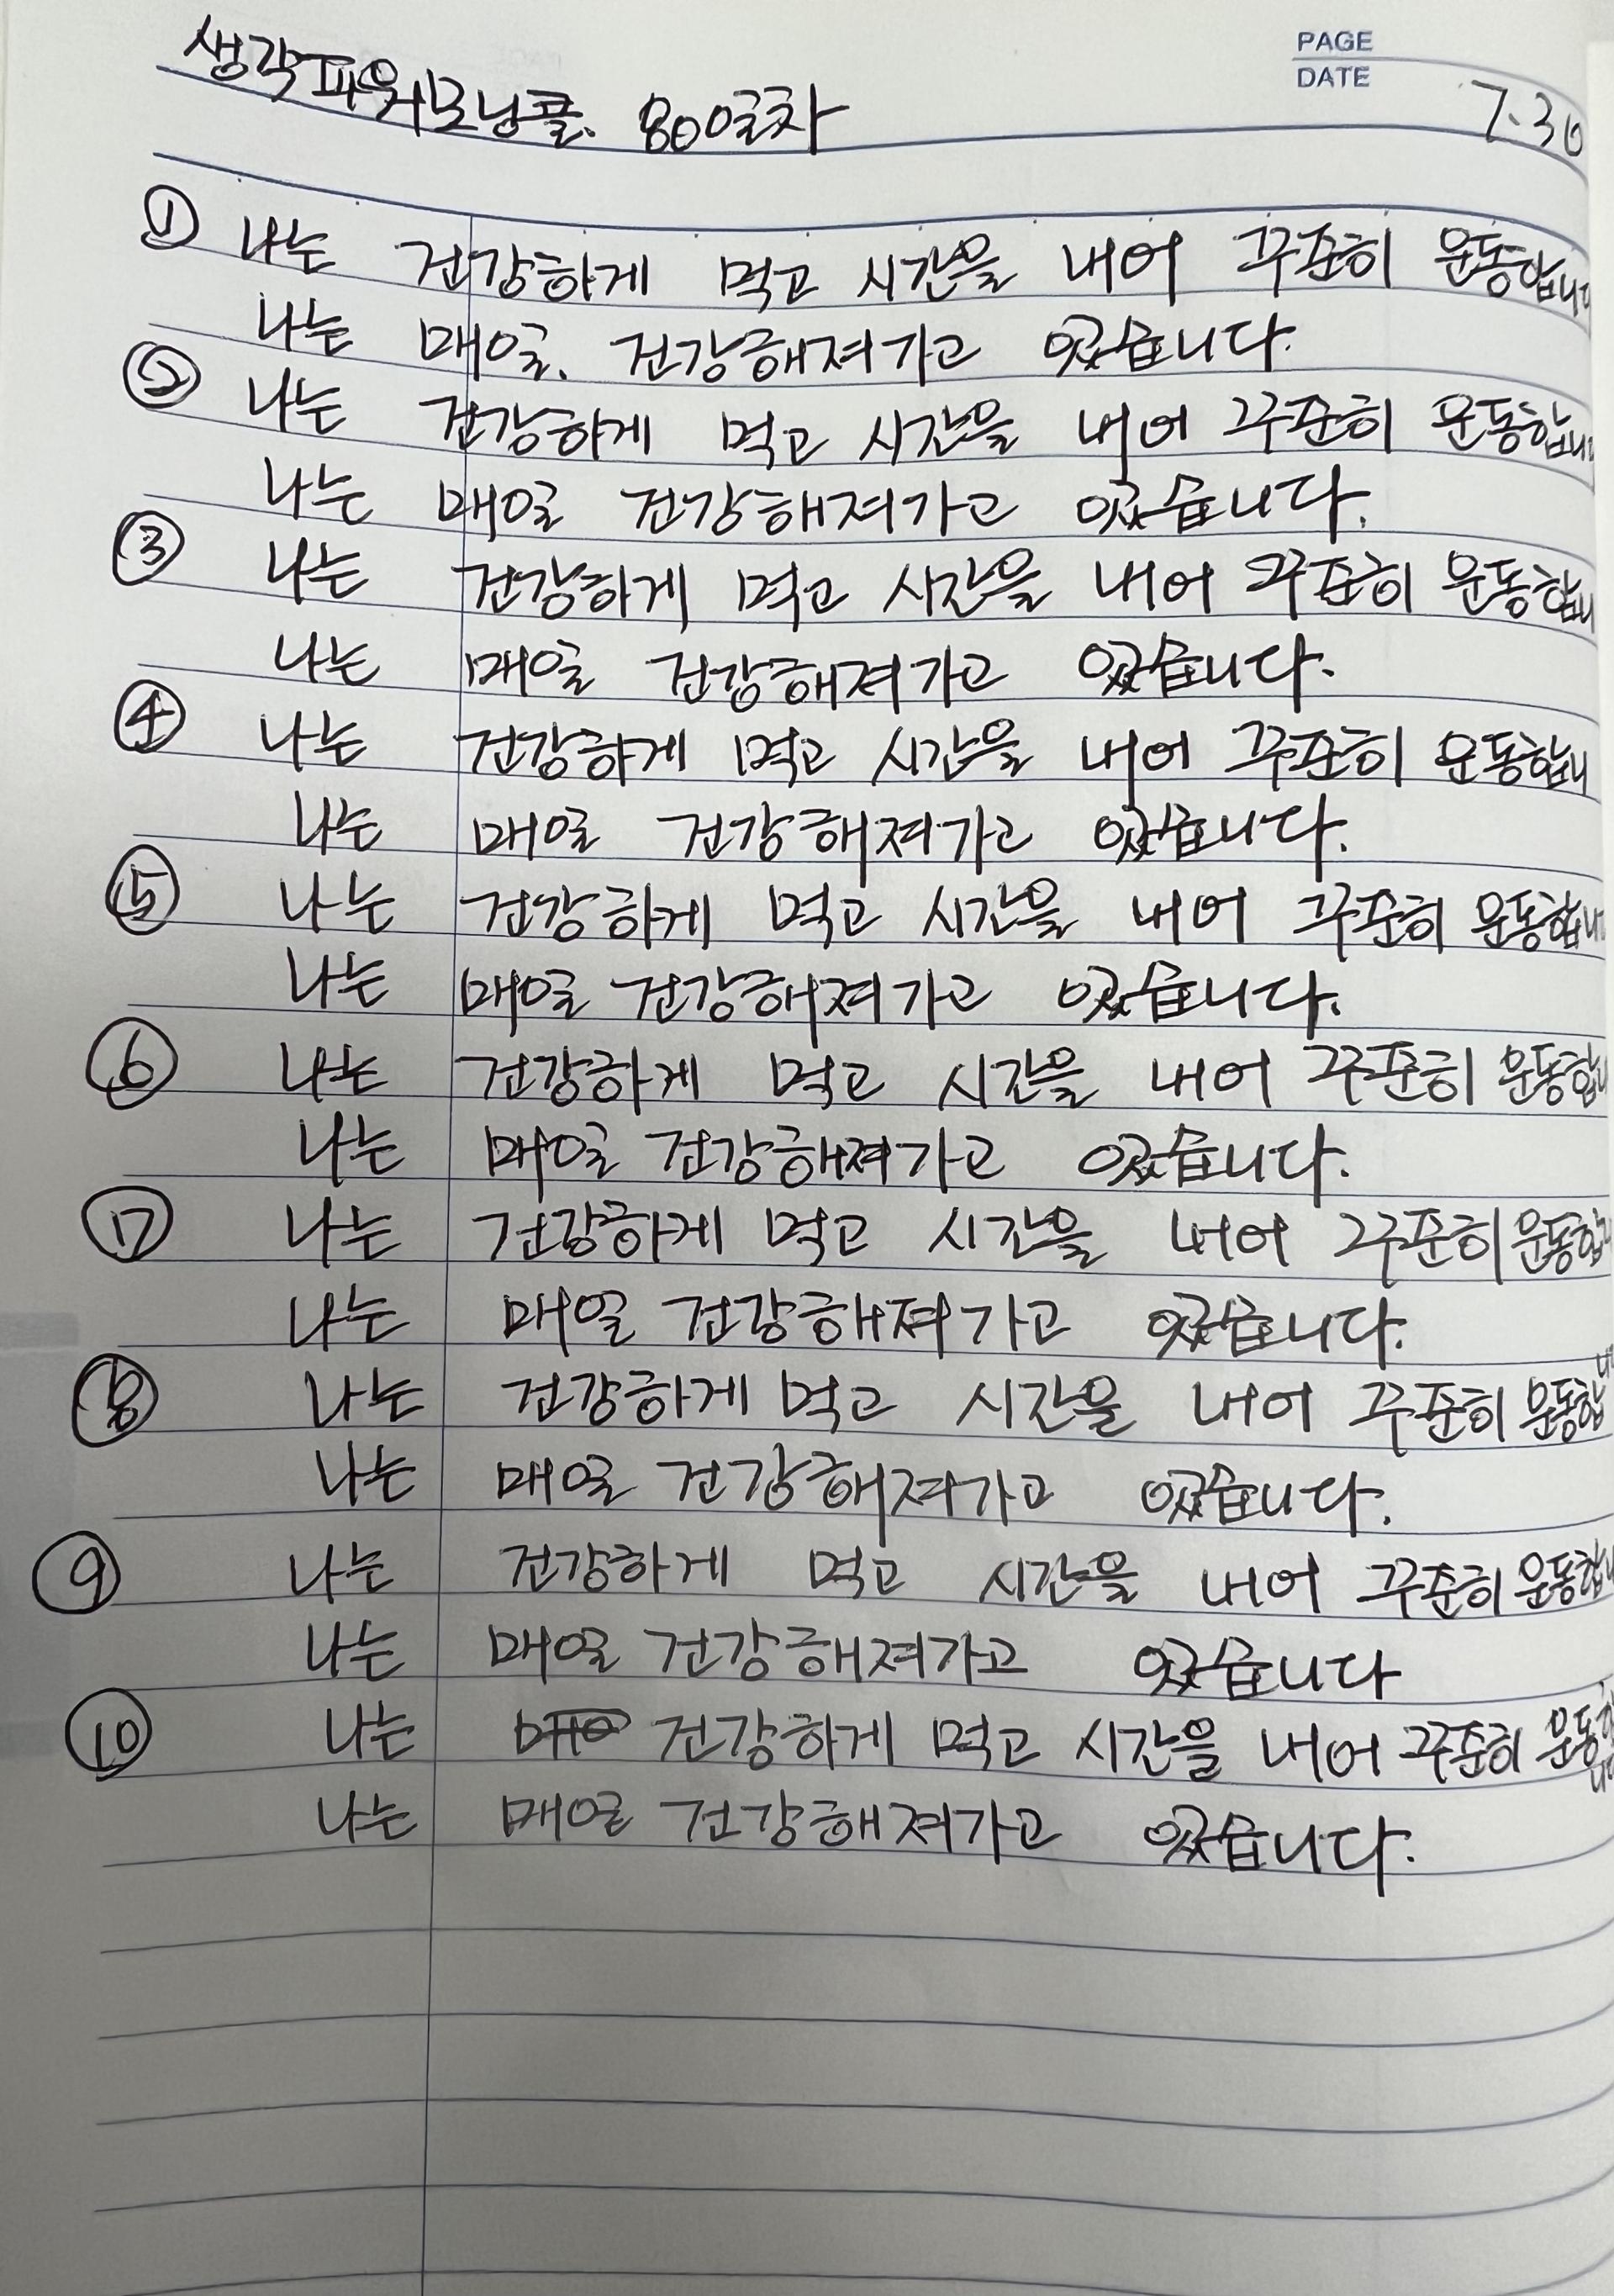 PAGE
DATE 7.30
생각파워모닝콜. 800일차
① 나는 건강하게 먹고 시간을 내어 꾸준히 운동합니
나는 매일. 건강해져가고 있습니다.
② 나는 건강하게 먹고 시간을 내어 꾸준히 운동합니
나는 매일 건강해져가고 있습니다.
③ 나는 건강하게 먹고 시간을 내어 꾸준히 운동합니
나는 매일 건강해져가고 있습니다.
④ 나는 건강하게 먹고 시간을 내어 꾸준히 운동합니
나는 매일 건강해져가고 있습니다.
⑤ 나는 건강하게 먹고 시간을 내어 꾸준히 운동합니
나는 매일 건강해져가고 있습니다.
⑥ 나는 건강하게 먹고 시간을 내어 꾸준히 운동합니
나는 매일 건강해져가고 있습니다.
⑦ 나는 건강하게 먹고 시간을 내어 꾸준히 운동합니
나는 매일 건강해져가고 있습니다.
⑧ 나는 건강하게 먹고 시간을 내어 꾸준히 운동합니
나는 매일 건강해져가고 있습니다.
⑨ 나는 건강하게 먹고 시간을 내어 꾸준히 운동합니
나는 매일 건강해져가고 있습니다
⑩ 나는 건강하게 먹고 시간을 내어 꾸준히 운동합니
나는 매일 건강해져가고 있습니다.